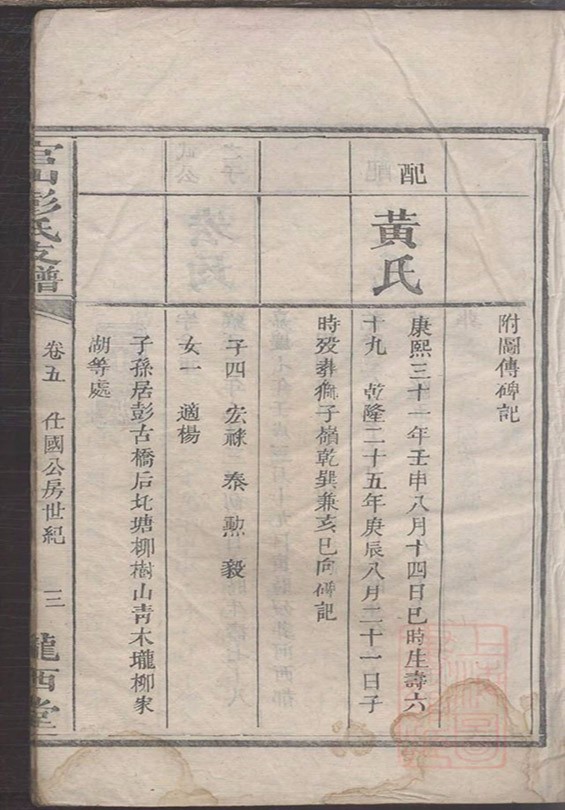 附圖傳碑記
配
黃氏
康熙三十一年壬申八月十四日巳時生壽六
十九 乾隆二十五年庚辰八月二十一日子
時歿葬獅子嶺乾巽兼亥巳向碑記
子四 宏祿 泰 勲 毅
女一 適楊
子孫居彭古橋后圫塘柳樹山青木壠柳家
湖等處
彭氏支譜
卷五 仕國公房世紀 三
隴西堂